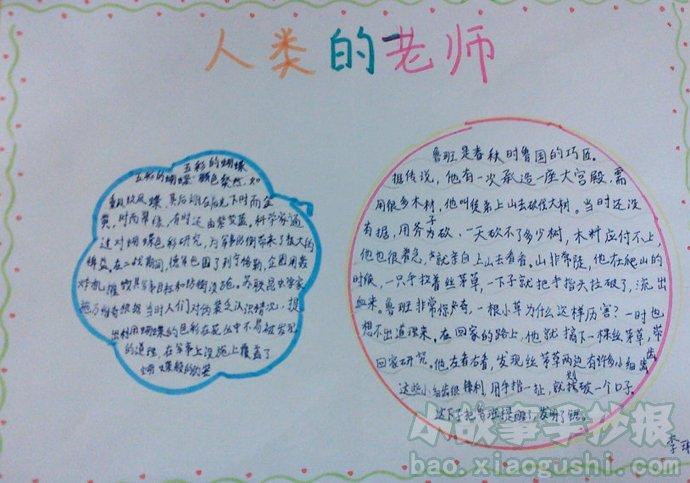 人类的老师
五彩的蝴蝶
五彩的蝴蝶 颜色粲然,如
金
黄,时而翠绿,有时还由紫变蓝。科学家通
过对蝴蝶色彩研究,为军事防御带来了极大的
裨益。在二战期间,德军包围了列宁格勒,企图用轰
炸机摧毁军事目标和防御设施。苏联昆虫学家
根据当时人们对伪装缺乏认识情况,提
出利用蝴蝶的色彩在花丛中不易被发现
的道理,在军事上设施上覆盖了
蝴蝶般的伪装
鲁班是春秋时鲁国的巧匠。
据传说,他有一次承造一座大宫殿,需
用很多木材,他叫徒弟上山去砍伐大树。当时还没
有据,用斧子砍,一天砍不了多少树,木料应付不上,
他也很着急,就亲自上山去看看。山非常陡,他在爬山的
时候,一只手拉着丝茅草,一下子就把手指头拉破了,流出
血来。鲁班非常惊奇,一根小草为什么这样厉害?一时也
想不出道理来。在回家的路上,他就摘下一棵丝茅草,带
回家研究。他左看右看,发现丝茅草两边有许多小细齿
这些小细齿很锋利,用手指一扯,就划破一个口子。
这下子把鲁班提醒了,发明了锯。
李
小故事手抄报
bao.xiaogushi.com